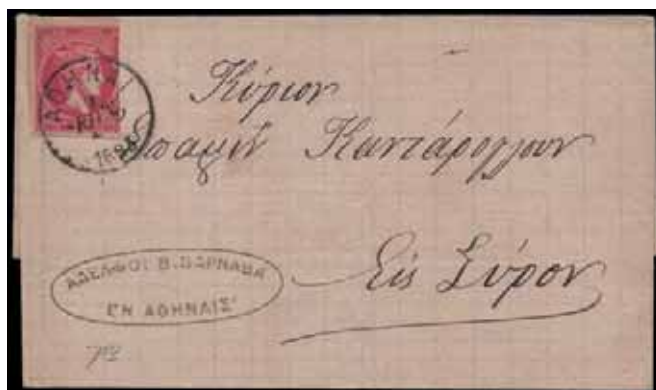 ΑΘΗΝΑΙ
Κύριον
Καντάρογλουν
Εἰς Σύρον
ΑΔΕΛΦΟΙ Β. ΒΑΡΝΑΒΑ
ΕΝ ΑΘΗΝΑΙΣ